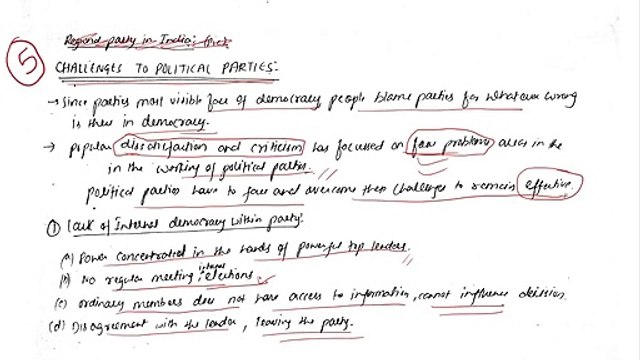 Regional party in India: (Pic)
5
CHALLENGES TO POLITICAL PARTIES:
→ Since parties most visible face of democracy people blame parties for whatever wrong
is there in democracy.
→ Popular dissatisfaction and criticism has focussed on four problems areas in the
in the working of political parties.
political parties have to face and overcome these challenges to remain effective.
① Lack of Internal democracy within party:
(a) Power concentrated in the hands of powerful top leaders.
(b) No regular meeting, internal elections
(c) ordinary members does not have access to information, cannot influence decision.
(d) Disagreement with the leader, leaving the party.